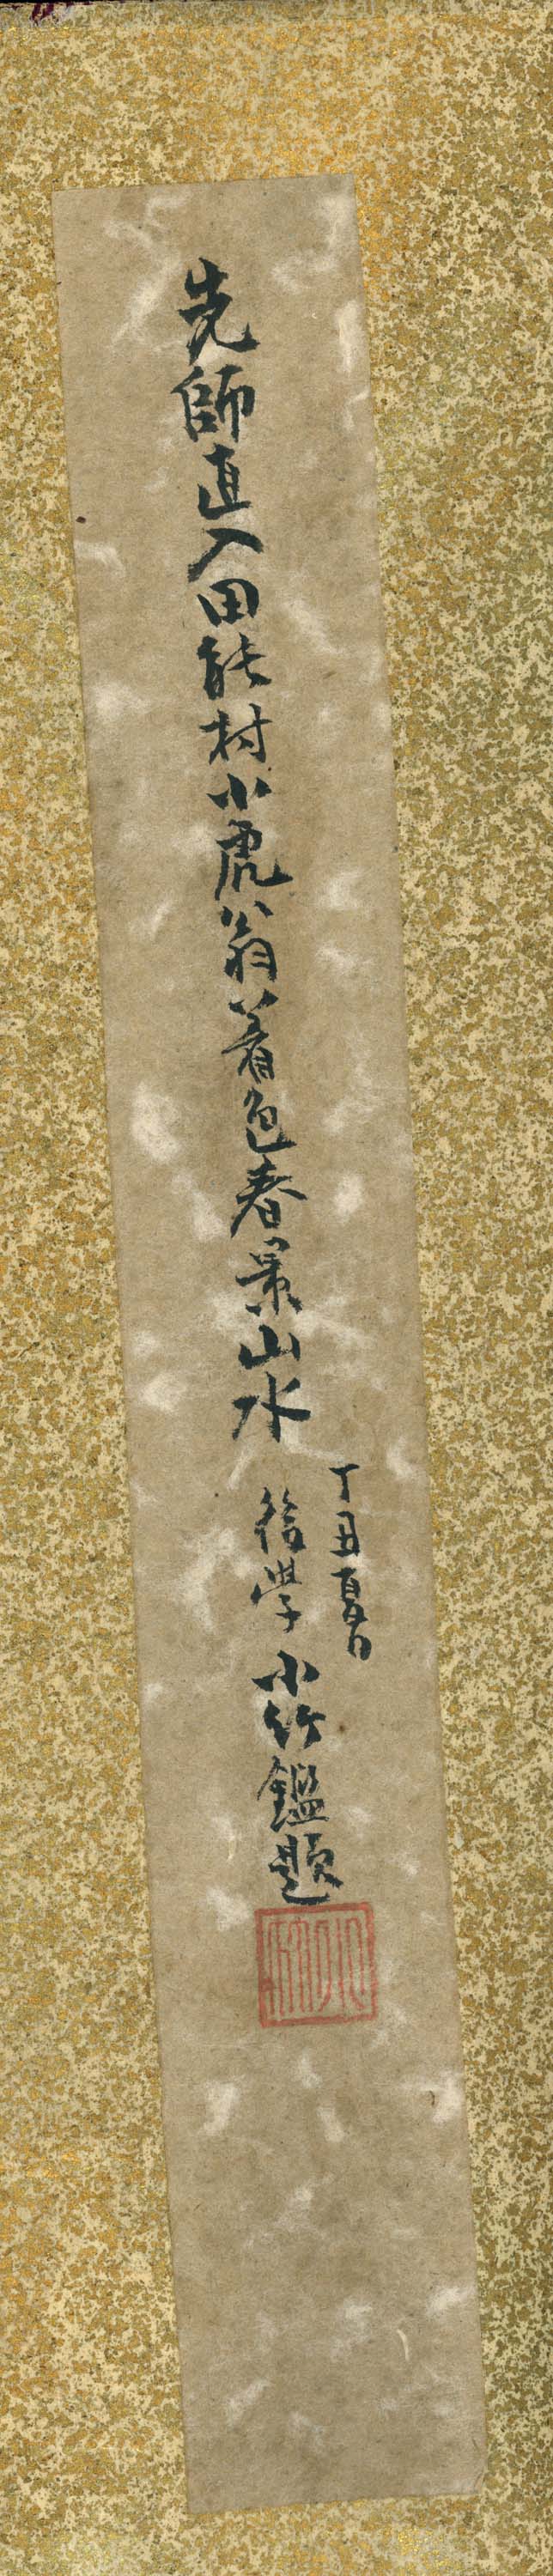 先師直入田能村小虎翁著色春景山水
丁丑夏日
後學 小竹鑑題